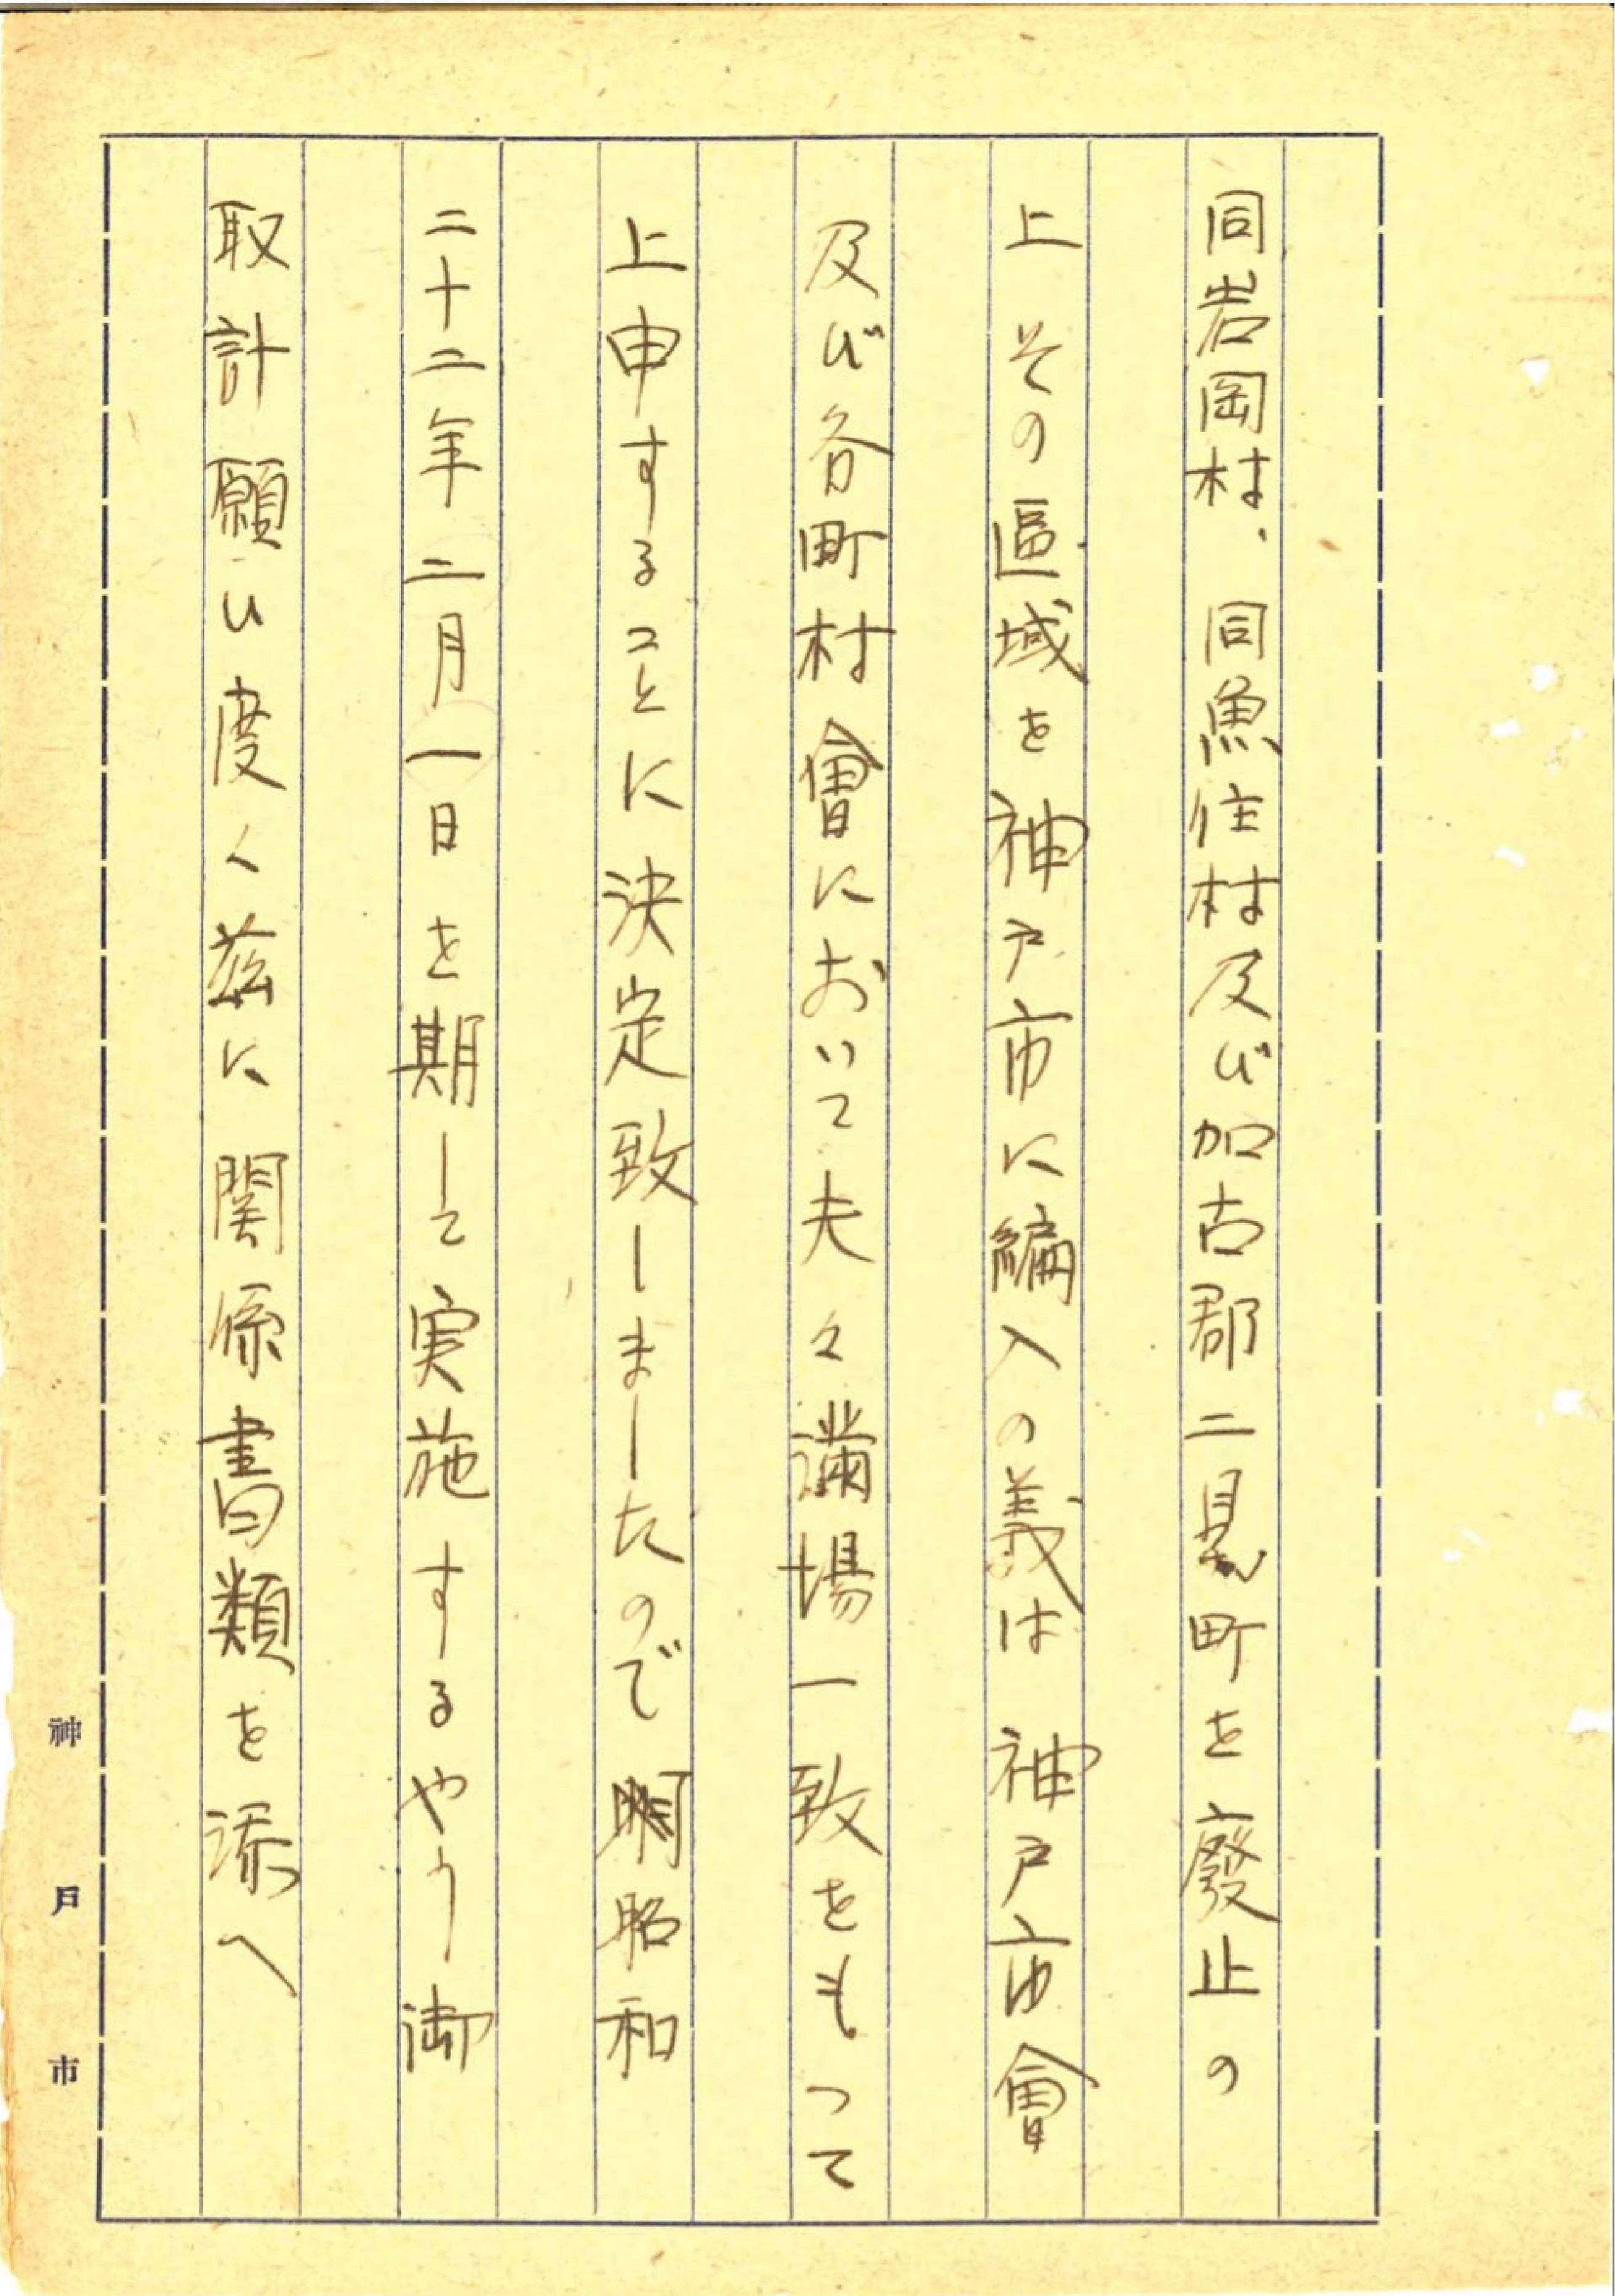 同岩岡村、同魚住村及び加古郡二見町を廢止の
上その區域を神戸市に編入の義は神戸市會
及び各町村會において夫々満場一致をもつて
上申することに決定致しましたので昭和
二十二年二月一日を期して実施するやう御
取計願ひ度く茲に関係書類を添へ
神戸市